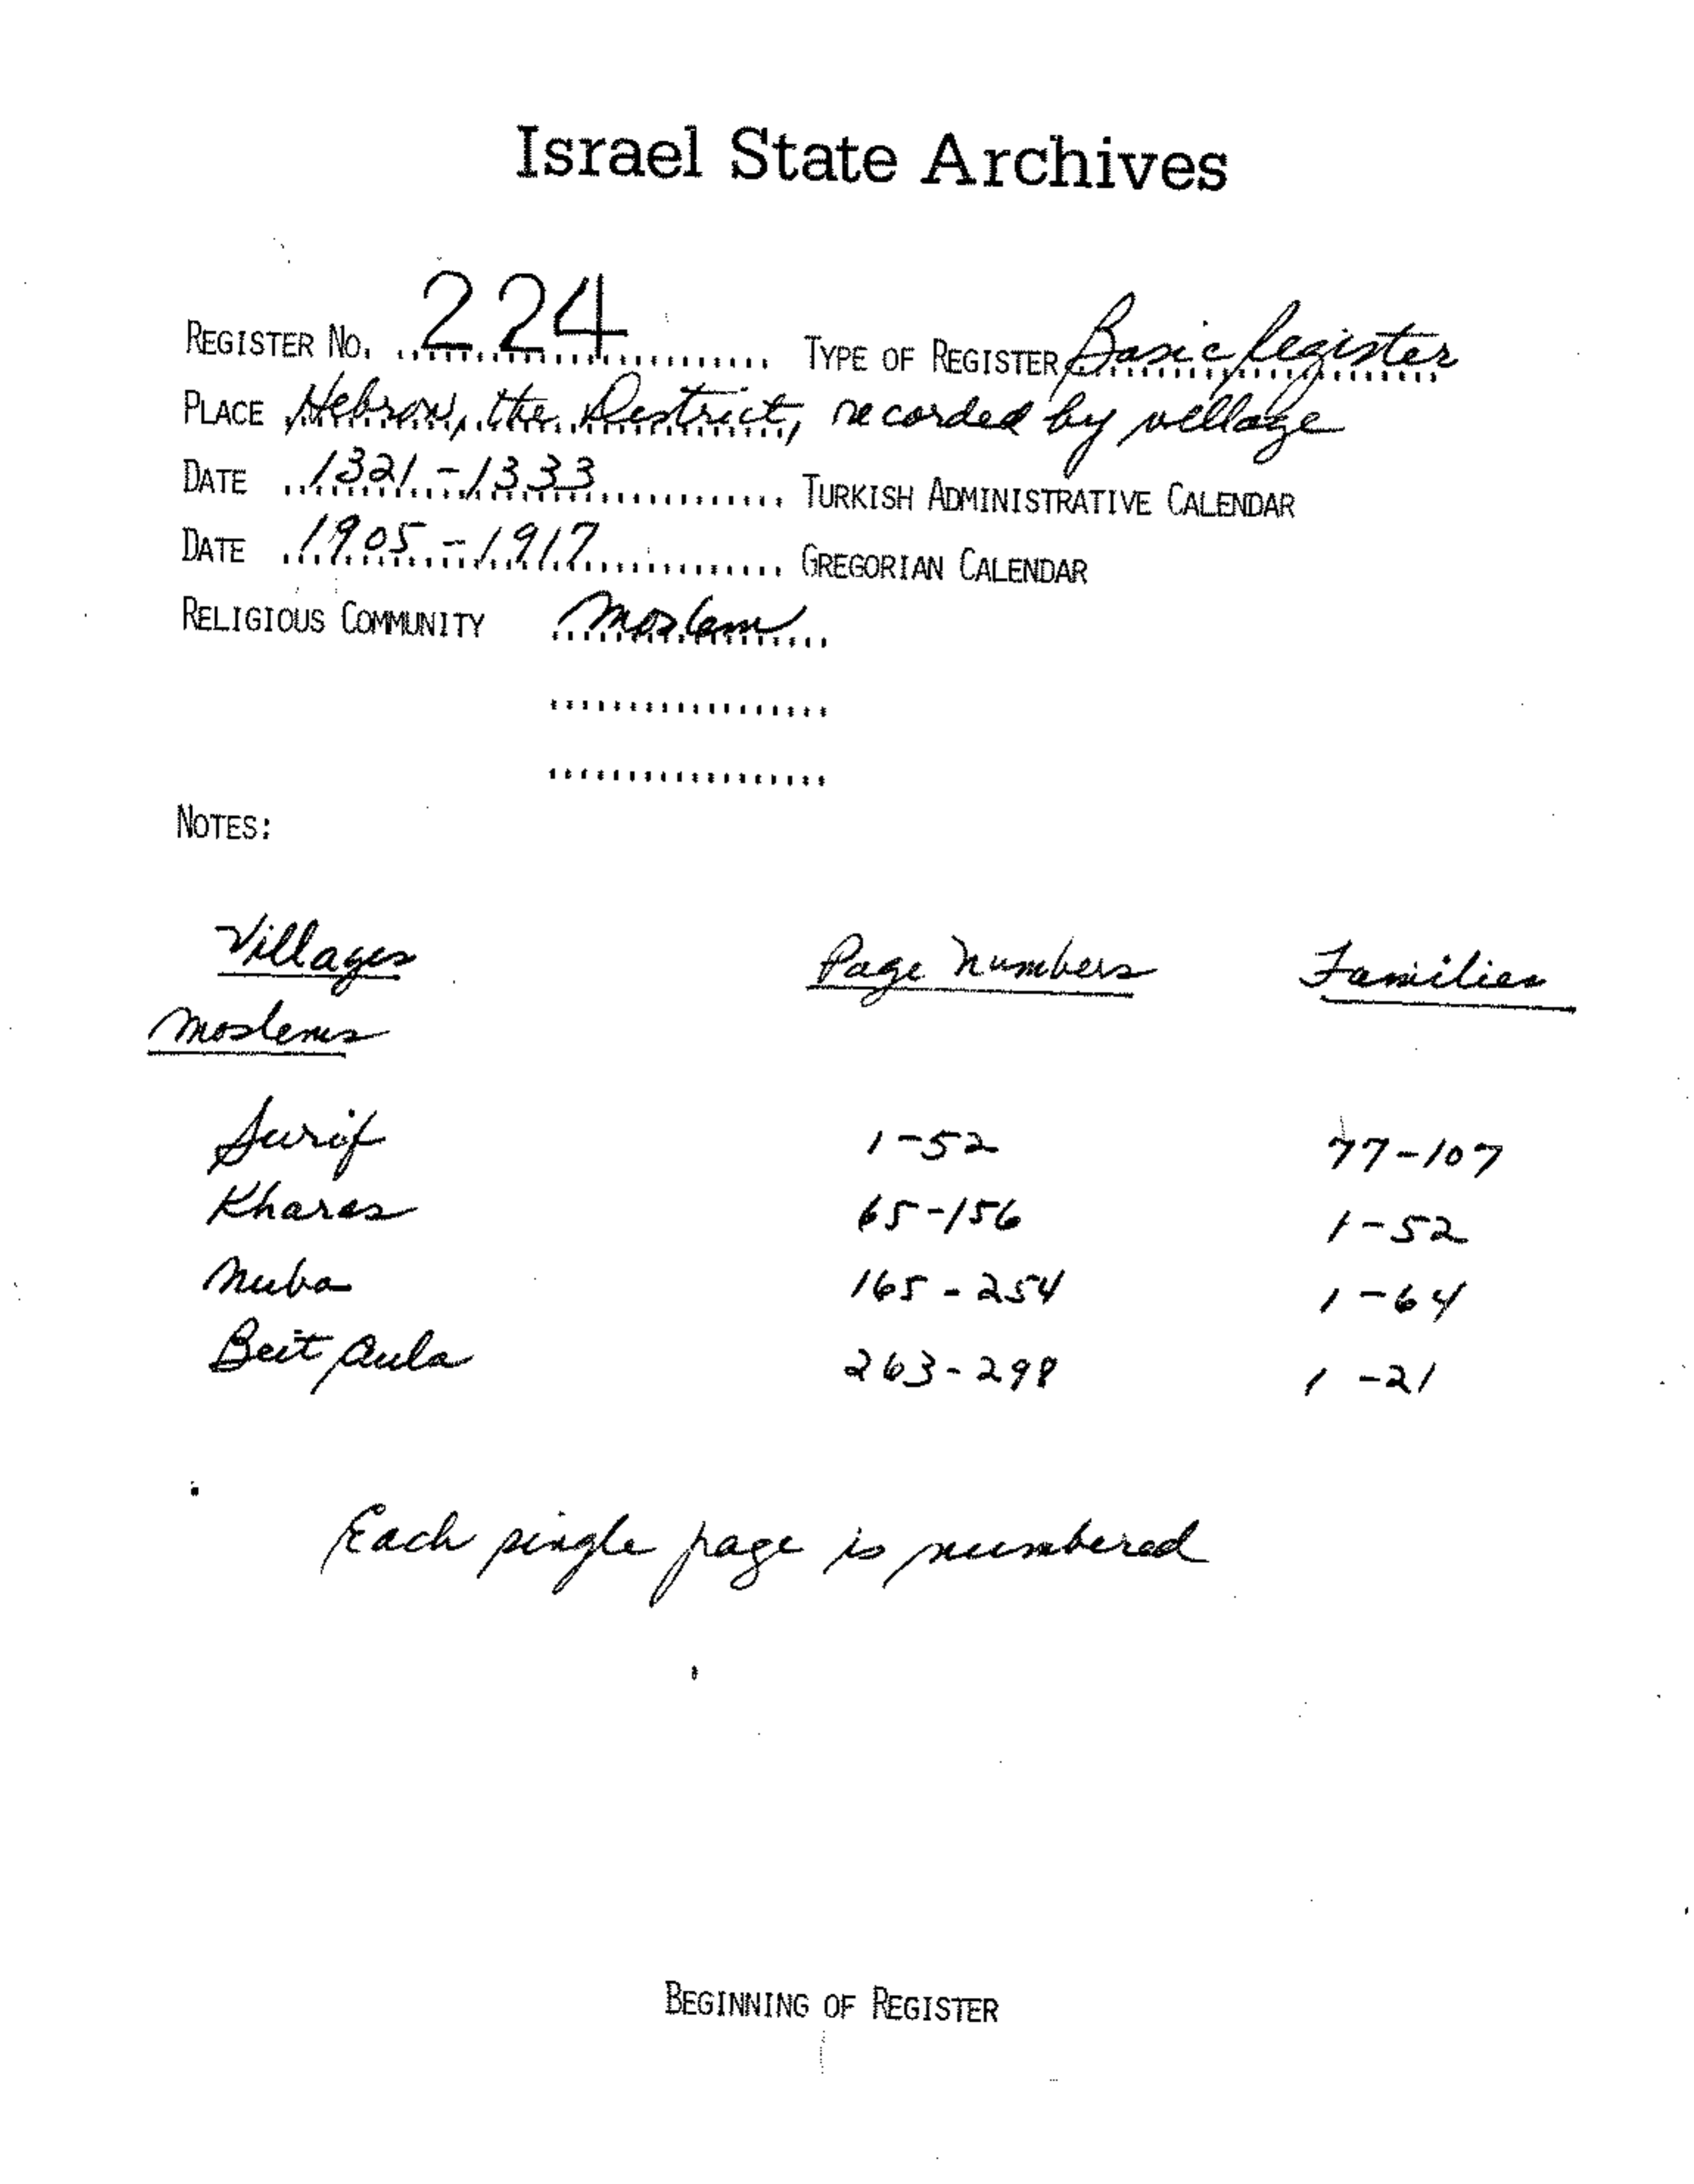 Israel State Archives
REGISTER NO. 224 TYPE OF REGISTER Basic Register
PLACE Hebron, the District, recorded by village
DATE 1321-1333 TURKISH ADMINISTRATIVE CALENDAR
DATE 1905-1917 GREGORIAN CALENDAR
RELIGIOUS COMMUNITY Moslem
NOTES:
Villages Page Numbers Families
Moslems
Surif 1-52 77-107
Kharas 65-156 1-52
Nuba 165-254 1-64
Beit Aula 263-298 1-21
Each single page is numbered
BEGINNING OF REGISTER